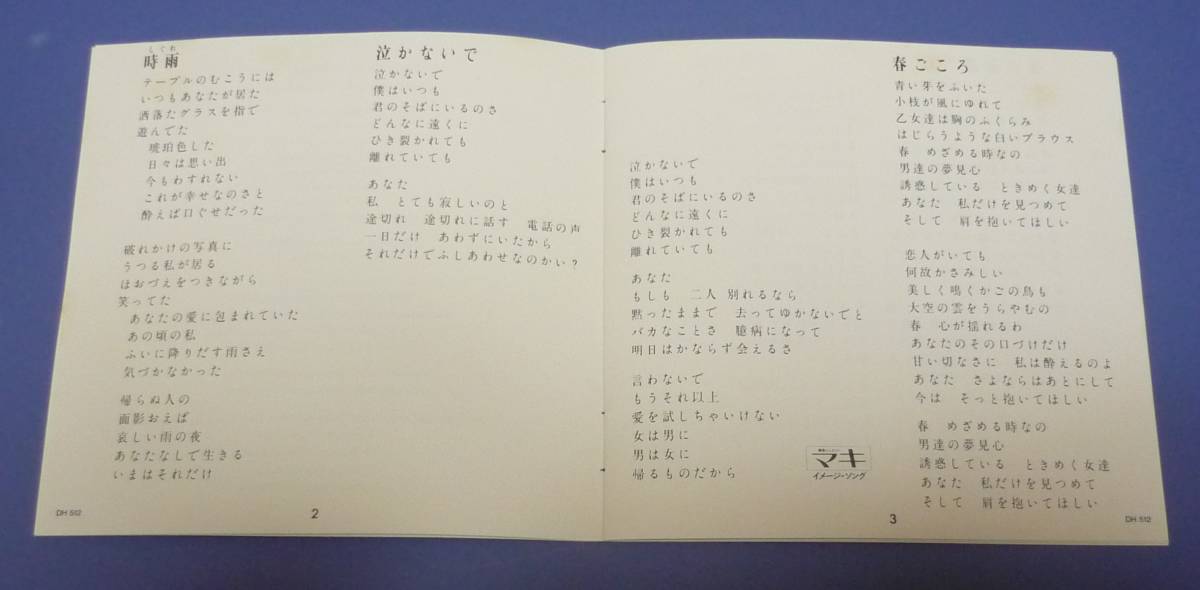 しぐれ
時雨
テーブルのむこうには
いつもあなたが居た
洒落たグラスを指で
遊んでた
琥珀色した
日々は思い出
今もわすれない
これが幸せなのさと
酔えば口ぐせだった
破れかけの写真に
うつる私が居る
ほおづえをつきながら
笑ってた
あなたの愛に包まれていた
あの頃の私
ふいに降りだす雨さえ
気づかなかった
帰らぬ人の
面影おえば
哀しい雨の夜
あなたなしで生きる
いまはそれだけ
DH 512
2
泣かないで
泣かないで
僕はいつも
君のそばにいるのさ
どんなに遠くに
ひき裂かれても
離れていても
あなた
私　とても寂しいのと
途切れ　途切れに話す　電話の声
一日だけ　あわずにいたから
それだけでふしあわせなのかい？
泣かないで
僕はいつも
君のそばにいるのさ
どんなに遠くに
ひき裂かれても
離れていても
あなた
もしも　二人 別れるなら
黙ったままで　去ってゆかないでと
バカなことさ　臆病になって
明日はかならず会えるさ
言わないで
もうそれ以上
愛を試しちゃいけない
女は男に
男は女に
帰るものだから
マキ
イメージ・ソング
春ごころ
青い芽をふいた
小枝が風にゆれて
乙女達は胸のふくらみ
はじらうような白いブラウス
春　めざめる時なの
男達の夢見心
誘惑している　ときめく女達
あなた　私だけを見つめて
そして　肩を抱いてほしい
恋人がいても
何故かさみしい
美しく鳴くかごの鳥も
大空の雲をうらやむの
春　心が揺れるわ
あなたのその口づけだけ
甘い切なさに　私は酔えるのよ
あなた　さよならはあとにして
今は　そっと抱いてほしい
春　めざめる時なの
男達の夢見心
誘惑している　ときめく女達
あなた　私だけを見つめて
そして　肩を抱いてほしい
3
DH 512